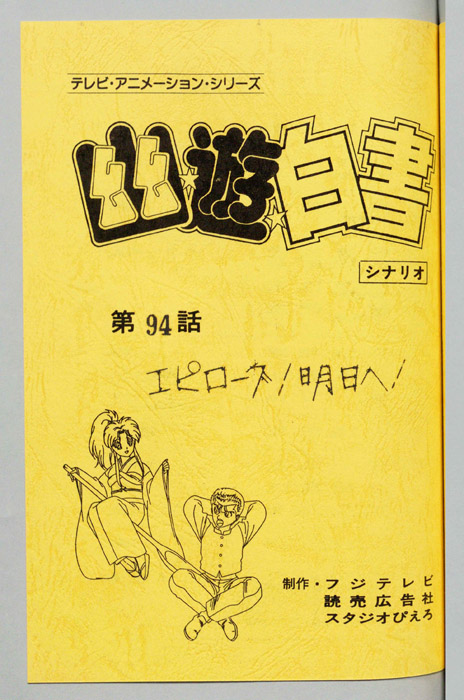 テレビ・アニメーション・シリーズ
幽☆遊☆白書
シナリオ
第94話
エピローグ!明日へ!
制作・フジテレビ
読売広告社
スタジオぴえろ